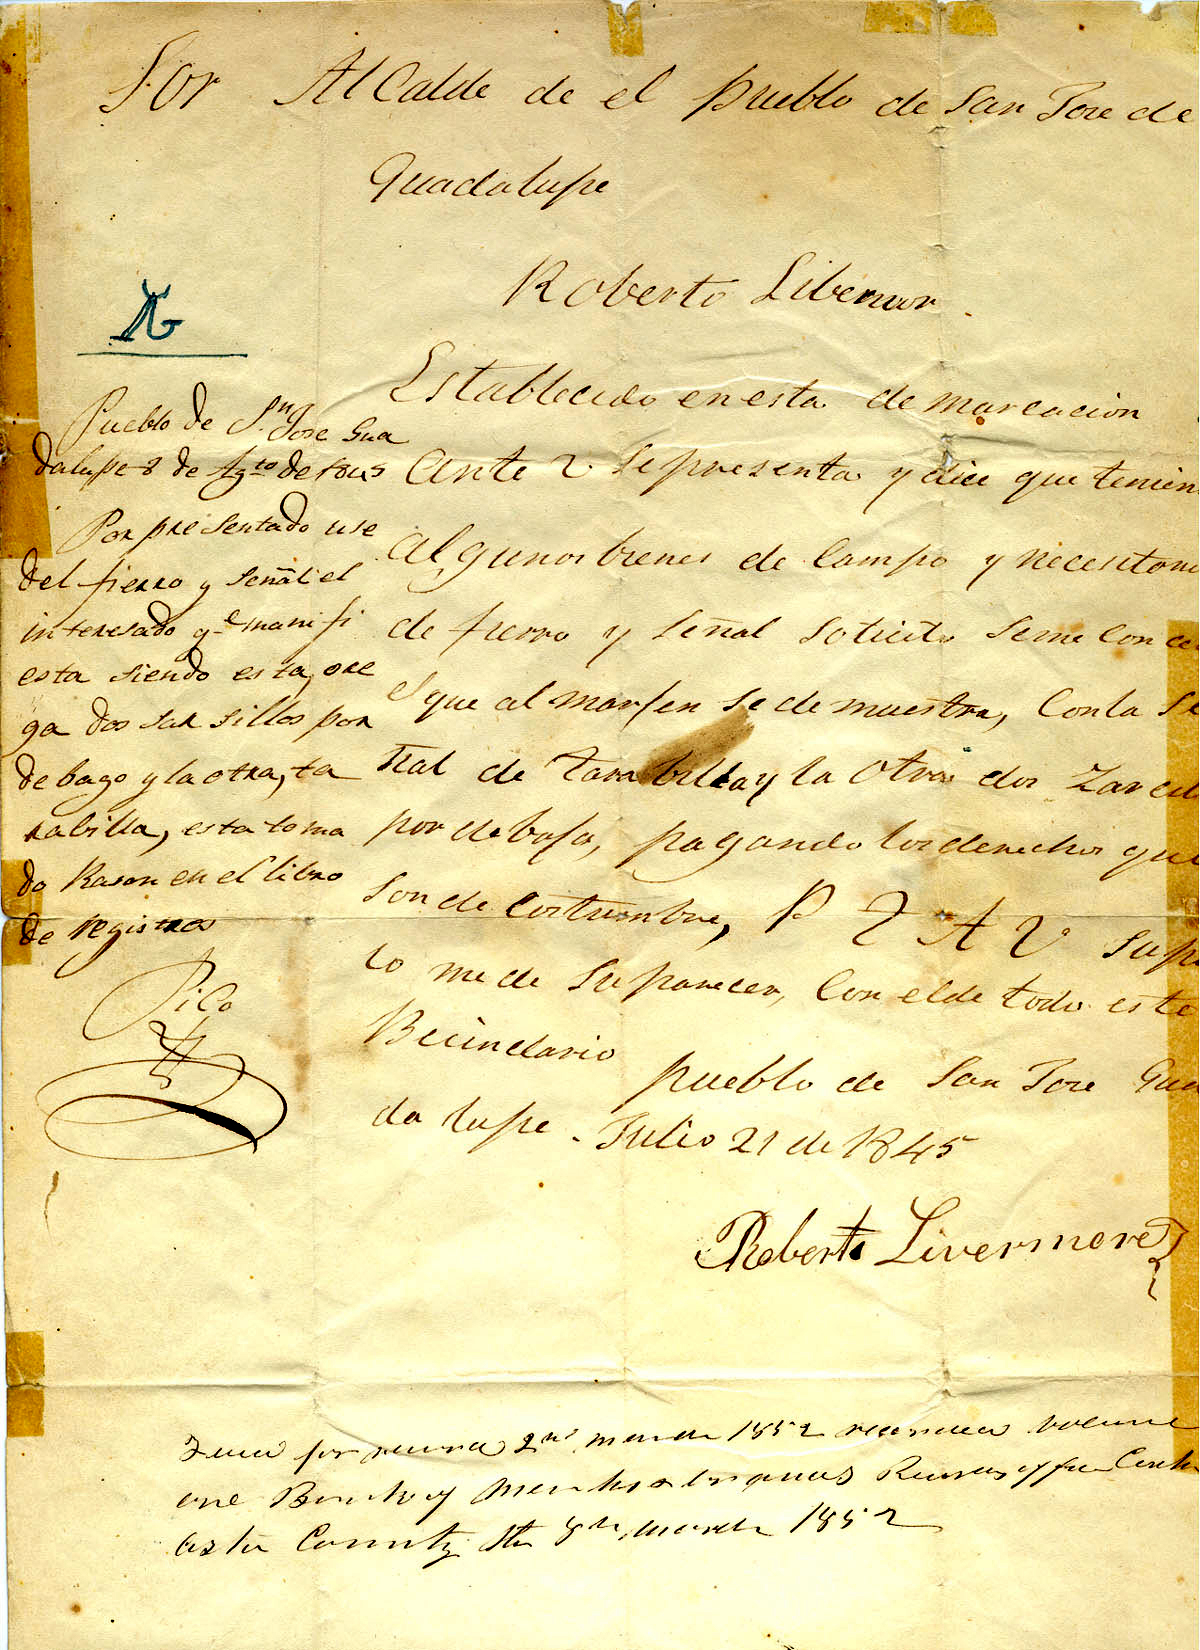 Sor Alcalde de el pueblo de San Jose de
Guadalupe
Roberto Libermor
Establecido en esta demarcacion
Ante V se presenta y dice que tenien
algunos bienes de campo y necesitan
de fierro y señal solicito se me conce
el que al marjen se demuestra, Con la Se
ñal de tarabilla y la otra dos Zarcill
por debajo, pagando los derechos que
son de costumbre, P T A V Sup
co me de su parecer, Con el de todo este
Becindario
pueblo de San Jose Gua
dalupe. Julio 21 de 1845
Roberto Livermore
Pueblo de Sn Jose Gua
dalupe 8 de Agto de 1845
Por presentado use
del fierro y señal el
interesado qe manifi
esta siendo esta, ore
ga dos sarsillos por
debago y la otra, ta
rabilla, esta toma
do Rason en el libro
de registros
Pico
march 1852 volume
one Book of Marks &
County 8th march 1852